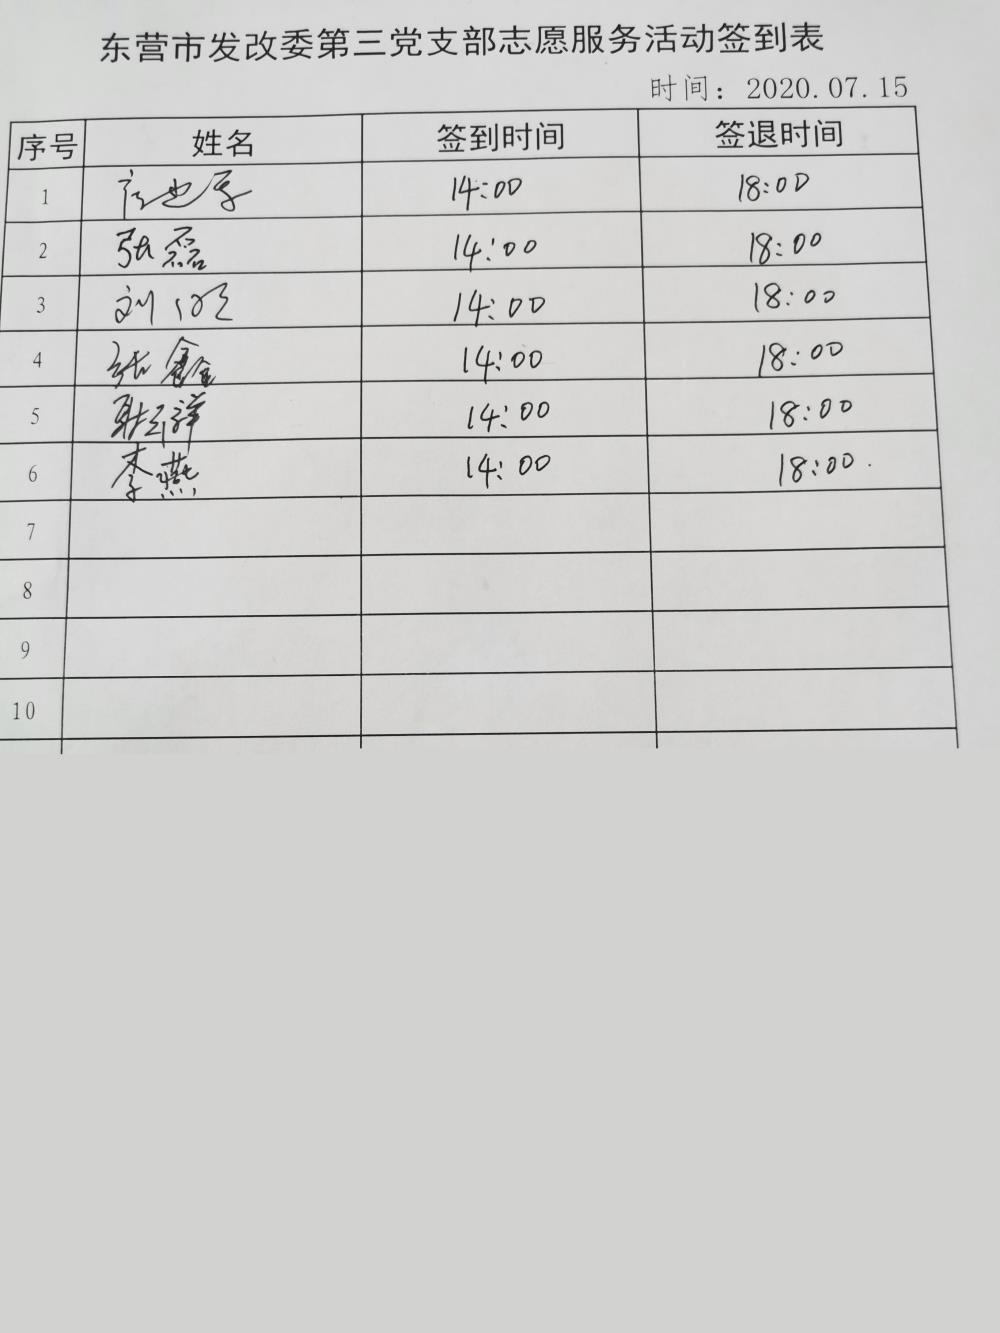 东营市发改委第三党支部志愿服务活动签到表
时间：2020.07.15
序号 姓名 签到时间 签退时间
1 14:00 18:00
2 张磊 14:00 18:00
3 刘 14:00 18:00
4 张鑫 14:00 18:00
5 14:00 18:00
6 李燕 14:00 18:00
7
8
9
10